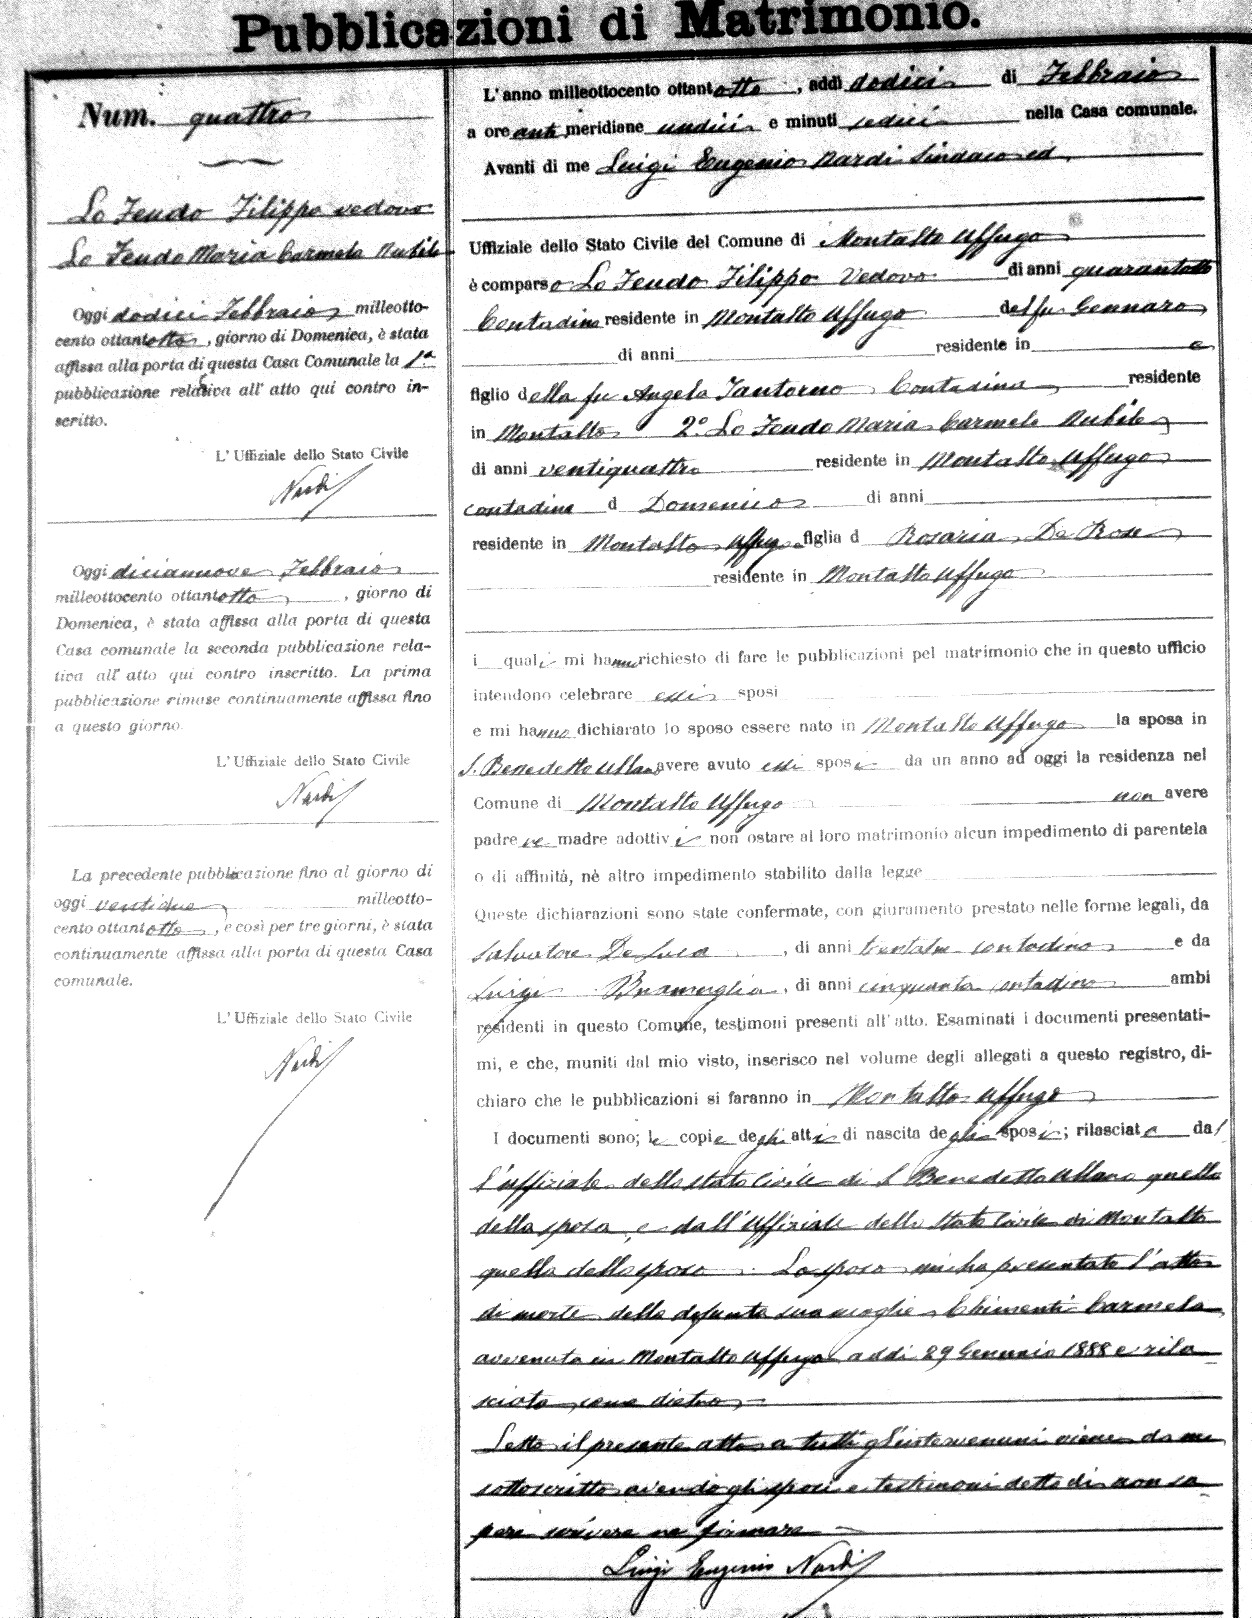 Pubblicazioni di Matrimonio.
Num. quattro
Lo Feudo Filippo vedovo
Lo Feudo Maria Carmela Nubile
Oggi dodici Febbraio milleotto-
cento ottantotto, giorno di Domenica, è stata
affissa alla porta di questa Casa Comunale la 1ª
pubblicazione relativa all' atto qui contro in-
scritto.
L' Uffiziale dello Stato Civile
Nardi
Oggi diciannove Febbraio
milleottocento ottantotto, giorno di
Domenica, è stata affissa alla porta di questa
Casa comunale la seconda pubblicazione rela-
tiva all' atto qui contro inscritto. La prima
pubblicazione rimase continuamente affissa fino
a questo giorno.
L' Uffiziale dello Stato Civile
Nardi
La precedente pubblicazione fino al giorno di
oggi ventidue milleotto-
cento ottantotto, e così per tre giorni, è stata
continuamente affissa alla porta di questa Casa
comunale.
L' Uffiziale dello Stato Civile
Nardi
L' anno milleottocento ottantotto, addì dodici di Febbraio
a ore anti meridiane undici e minuti sedici nella Casa comunale.
Avanti di me Luigi Eugenio Nardi Sindaco ed
Uffiziale dello Stato Civile del Comune di Montalto Uffugo
è comparso Lo Feudo Filippo Vedovo di anni quarantotto
Contadino residente in Montalto Uffugo del fu Gennaro
di anni residente in e
figlio della fu Angela Tantorno Contadina residente
in Montalto 2º Lo Feudo Maria Carmela Nubile
di anni ventiquattro residente in Montalto Uffugo
contadina d Domenico di anni
residente in Montalto Uffugo figlia d Rosaria De Rose
residente in Montalto Uffugo
i quali mi hanno richiesto di fare le pubblicazioni pel matrimonio che in questo ufficio
intendono celebrare essi sposi
e mi hanno dichiarato lo sposo essere nato in Montalto Uffugo la sposa in
S. Benedetto Ullano avere avuto essi sposi da un anno ad oggi la residenza nel
Comune di Montalto Uffugo non avere
padre ne madre adottivi non ostare al loro matrimonio alcun impedimento di parentela
o di affinità, nè altro impedimento stabilito dalla legge
Queste dichiarazioni sono state confermate, con giuramento prestato nelle forme legali, da
Salvatore De Luca, di anni contadino e da
Luigi, di anni cinquanta contadino ambi
residenti in questo Comune, testimoni presenti all' atto. Esaminati i documenti presentati-
mi, e che, muniti dal mio visto, inserisco nel volume degli allegati a questo registro, di-
chiaro che le pubblicazioni si faranno in Montalto Uffugo
I documenti sono; le copie degli atti di nascita degli sposi; rilasciate dal
l'uffiziale dello stato Civile di S Benedetto Ullano quella
della sposa, e dall'Uffiziale dello Stato Civile di Montalto
quella dello sposo. Lo sposo mi ha presentato l'atto
di morte della defunta sua moglie Chimenti Carmela
avvenuta in Montalto Uffugo addi 29 Gennaio 1888 e rila
sciato come dietro
Letto il presente atto a tutti gl'intervenuti viene da me
sottoscritto avendo gli sposi e testimoni detto di non sa
pere scrivere ne firmare
Luigi Eugenio Nardi